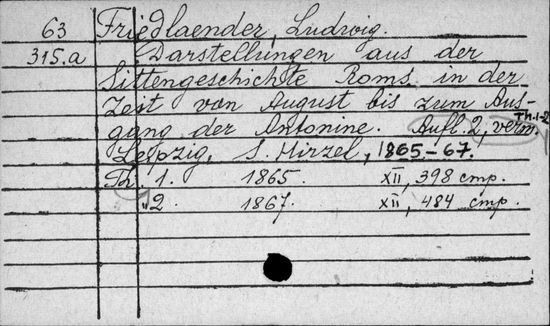 63 Friedlaender, Ludwig.
315.a Darstellungen aus der
Sittengeschichte Roms in der
Zeit von August bis zum Aus-
gang der Antonine. Aufl. 2, verm. Th. 1-2
Leipzig, S. Hirzel, 1865-67.
Th. 1. 1865. XII, 398 стр.
„ 2. 1867. XII, 484 стр.